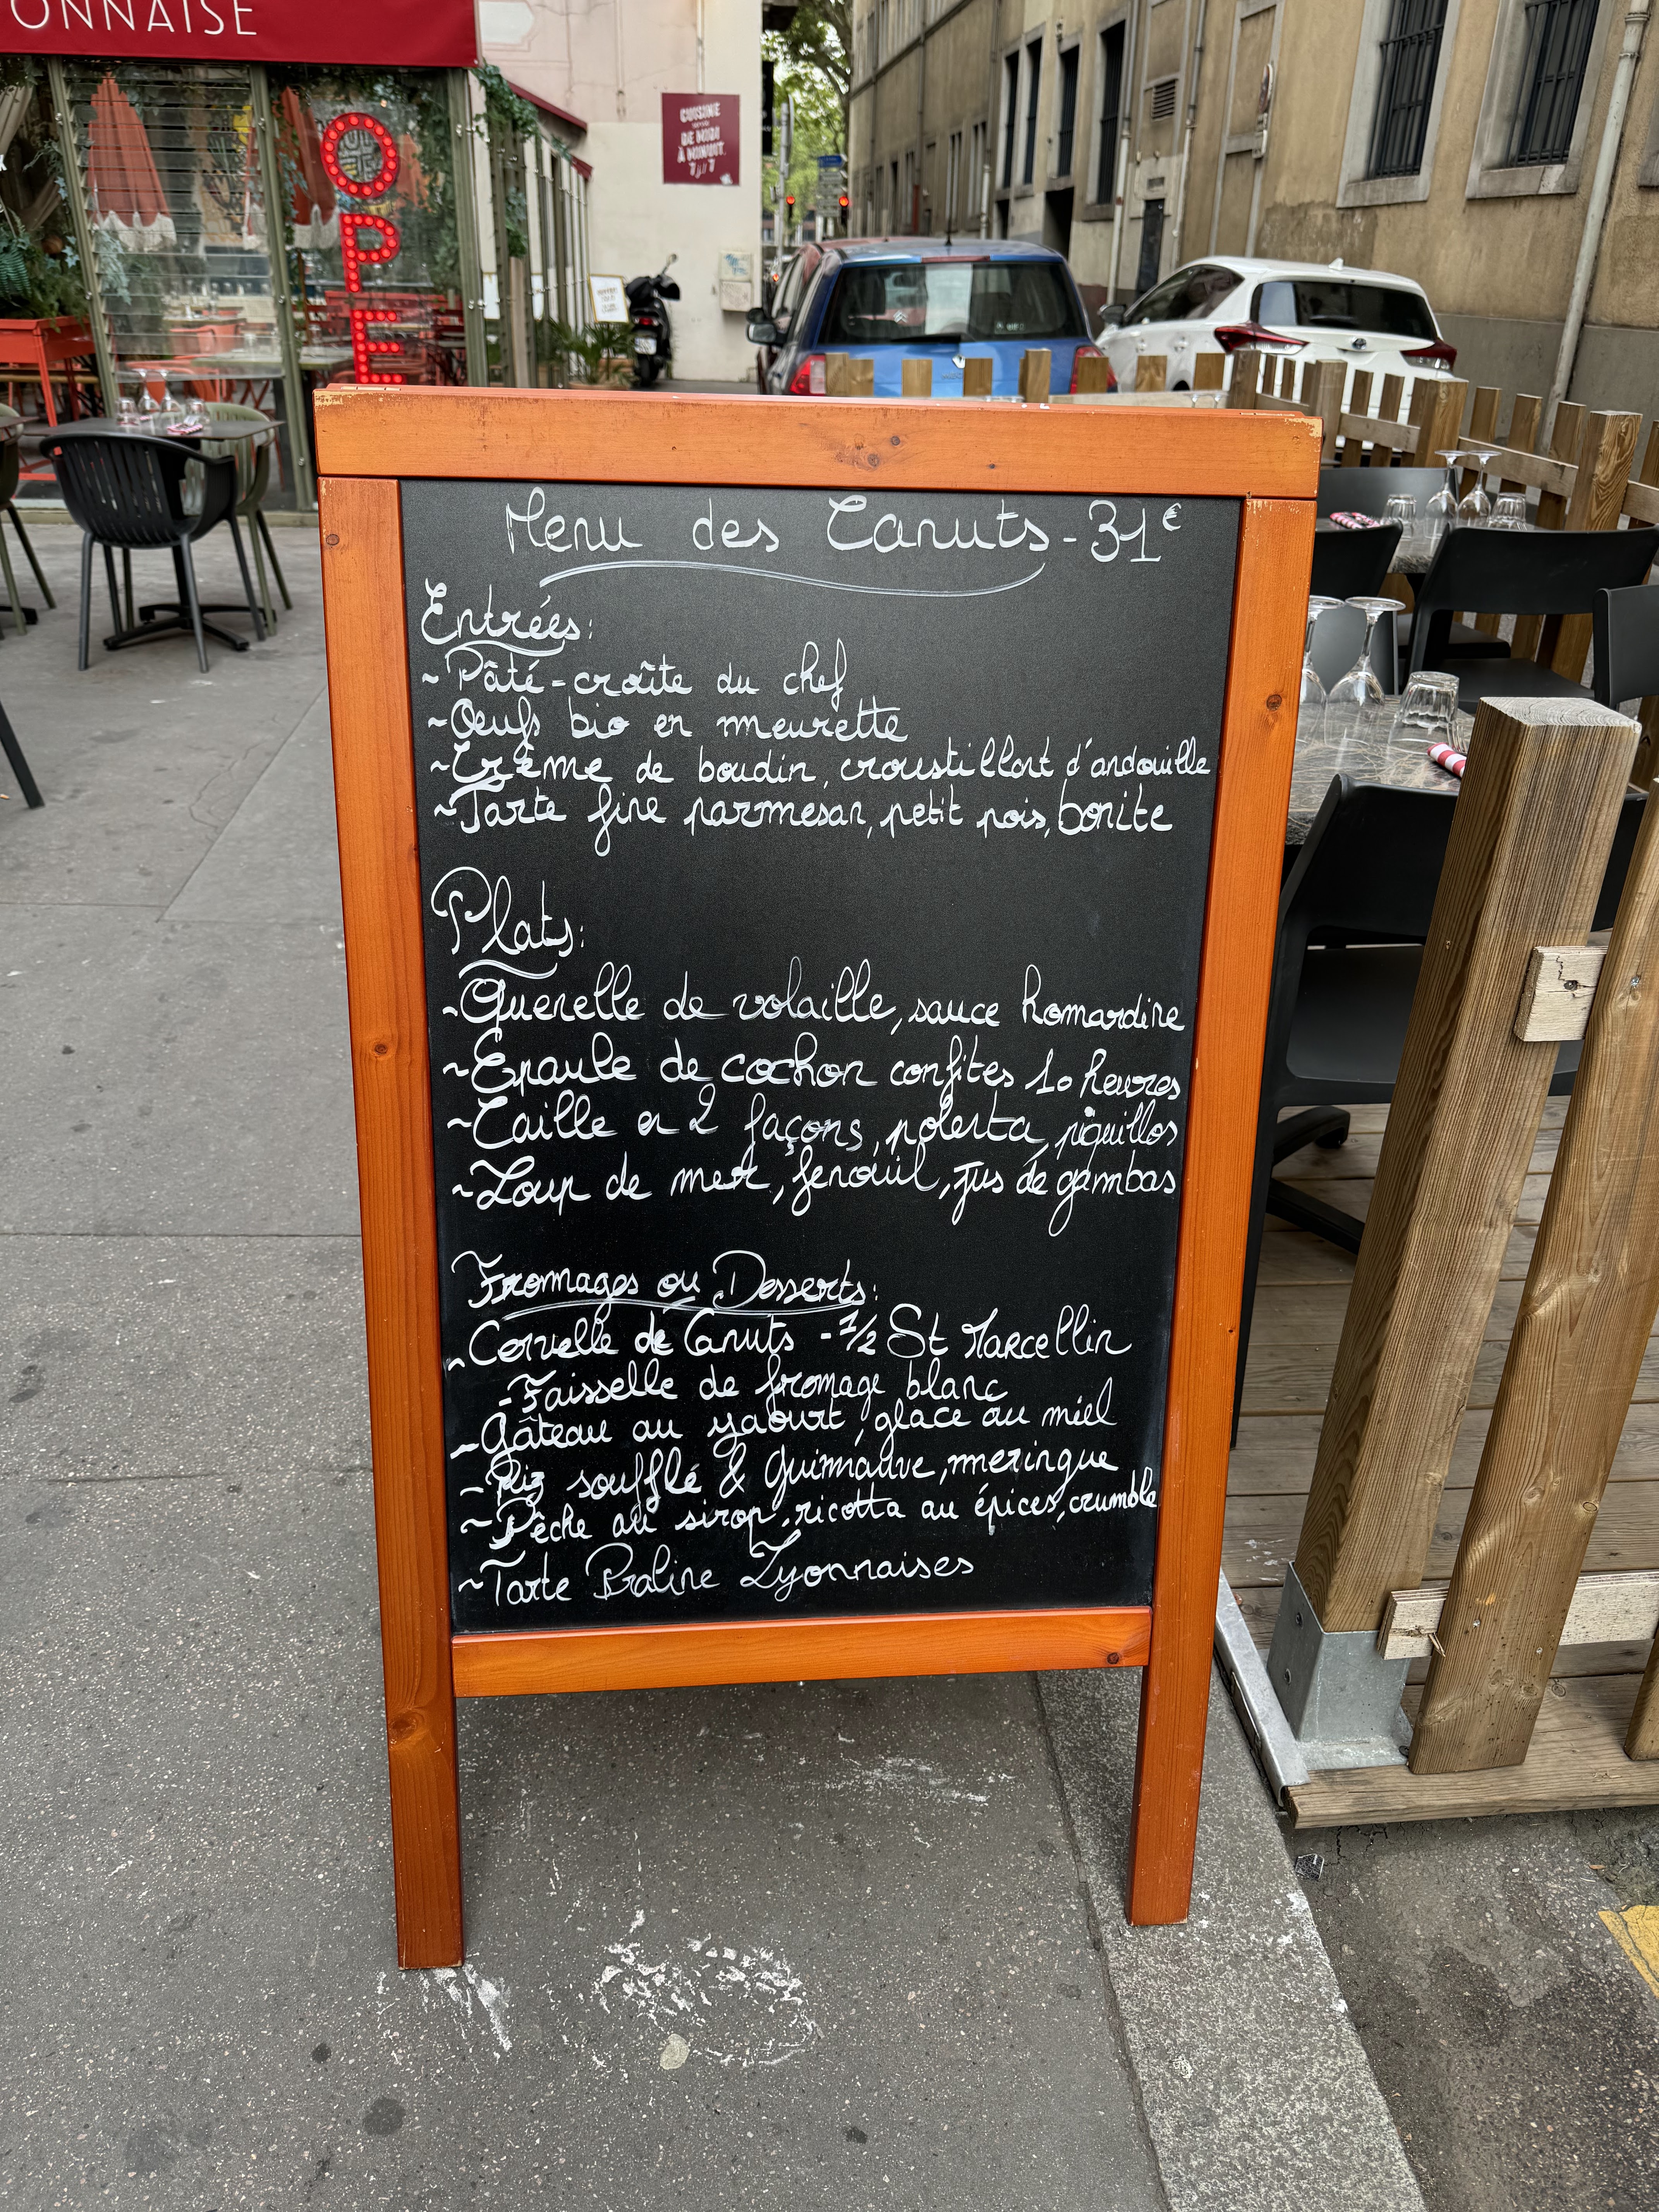 ONNAISE
OPE
CUISINE
DE MIDI
À MINUIT
7j/7
Menu des Canuts - 31€
Entrées:
~ Pâté-croûte du chef
~ Oeufs bio en meurette
~ Crème de boudin, croustillant d'andouille
~ Tarte fine parmesan, petit pois, bonite
Plats:
~ Quenelle de volaille, sauce homardine
~ Epaule de cochon confites 10 heures
~ Caille en 2 façons, polenta, piquillos
~ Loup de mer, fenouil, jus de gambas
Fromages ou Desserts:
~ Cervelle de Canuts - 1/2 St Marcellin
- Faisselle de fromage blanc
- Gâteau au yaourt, glace au miel
- Riz soufflé & Guimauve, meringue
~ Pêche au sirop, ricotta au épices, crumble
~ Tarte Praline Lyonnaises